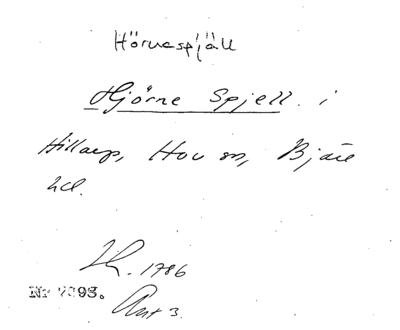 Hörnespjäll
Hjörne Spjell. i
Hillarp, Hov sn, Bjäre
hd.
1786
Nr 7393.
Ant 3.